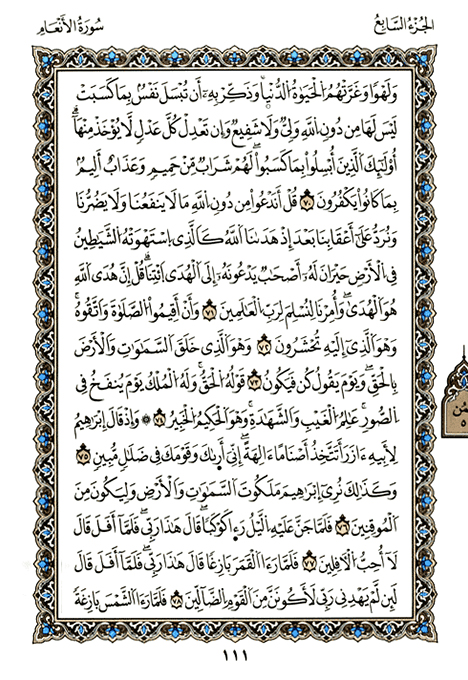 الجزء السابع
سورة الأنعام
وَلَهْوًا وَغَرَّتْهُمُ الْحَيَوٰةُ الدُّنْيَا وَذَكِّرْ بِهِۦٓ أَن تُبْسَلَ نَفْسٌ بِمَا كَسَبَتْ
لَيْسَ لَهَا مِن دُونِ اللَّهِ وَلِيٌّ وَلَا شَفِيعٌ وَإِن تَعْدِلْ كُلَّ عَدْلٍ لَّا يُؤْخَذْ مِنْهَا
أُوْلَٰٓئِكَ الَّذِينَ أُبْسِلُوا بِمَا كَسَبُوا لَهُمْ شَرَابٌ مِّنْ حَمِيمٍ وَعَذَابٌ أَلِيمٌ
بِمَا كَانُوا يَكْفُرُونَ ٧٠ قُلْ أَنَدْعُوا مِن دُونِ اللَّهِ مَا لَا يَنفَعُنَا وَلَا يَضُرُّنَا
وَنُرَدُّ عَلَىٰٓ أَعْقَابِنَا بَعْدَ إِذْ هَدَىٰنَا اللَّهُ كَالَّذِى اسْتَهْوَتْهُ الشَّيَٰطِينُ
فِى الْأَرْضِ حَيْرَانَ لَهُۥٓ أَصْحَٰبٌ يَدْعُونَهُۥٓ إِلَى الْهُدَى ائْتِنَا قُلْ إِنَّ هُدَى اللَّهِ
هُوَ الْهُدَىٰ وَأُمِرْنَا لِنُسْلِمَ لِرَبِّ الْعَٰلَمِينَ ٧١ وَأَنْ أَقِيمُوا الصَّلَوٰةَ وَاتَّقُوهُ
وَهُوَ الَّذِىٓ إِلَيْهِ تُحْشَرُونَ ٧٢ وَهُوَ الَّذِى خَلَقَ السَّمَٰوَٰتِ وَالْأَرْضَ
بِالْحَقِّ وَيَوْمَ يَقُولُ كُن فَيَكُونُ ٧٣ قَوْلُهُ الْحَقُّ وَلَهُ الْمُلْكُ يَوْمَ يُنفَخُ فِى
الصُّورِ عَٰلِمُ الْغَيْبِ وَالشَّهَٰدَةِ وَهُوَ الْحَكِيمُ الْخَبِيرُ ٧٤ ۞ وَإِذْ قَالَ إِبْرَٰهِيمُ
لِأَبِيهِ ءَازَرَ أَتَتَّخِذُ أَصْنَامًا ءَالِهَةً إِنِّىٓ أَرَىٰكَ وَقَوْمَكَ فِى ضَلَٰلٍ مُّبِينٍ ٧٥
وَكَذَٰلِكَ نُرِىٓ إِبْرَٰهِيمَ مَلَكُوتَ السَّمَٰوَٰتِ وَالْأَرْضِ وَلِيَكُونَ مِنَ
الْمُوقِنِينَ ٧٦ فَلَمَّا جَنَّ عَلَيْهِ الَّيْلُ رَءَا كَوْكَبًا قَالَ هَٰذَا رَبِّى فَلَمَّآ أَفَلَ قَالَ
لَآ أُحِبُّ الْآفِلِينَ ٧٧ فَلَمَّا رَءَا الْقَمَرَ بَازِغًا قَالَ هَٰذَا رَبِّى فَلَمَّآ أَفَلَ قَالَ
لَئِن لَّمْ يَهْدِنِى رَبِّى لَأَكُونَنَّ مِنَ الْقَوْمِ الضَّآلِّينَ ٧٨ فَلَمَّا رَءَا الشَّمْسَ بَازِغَةً
١١١